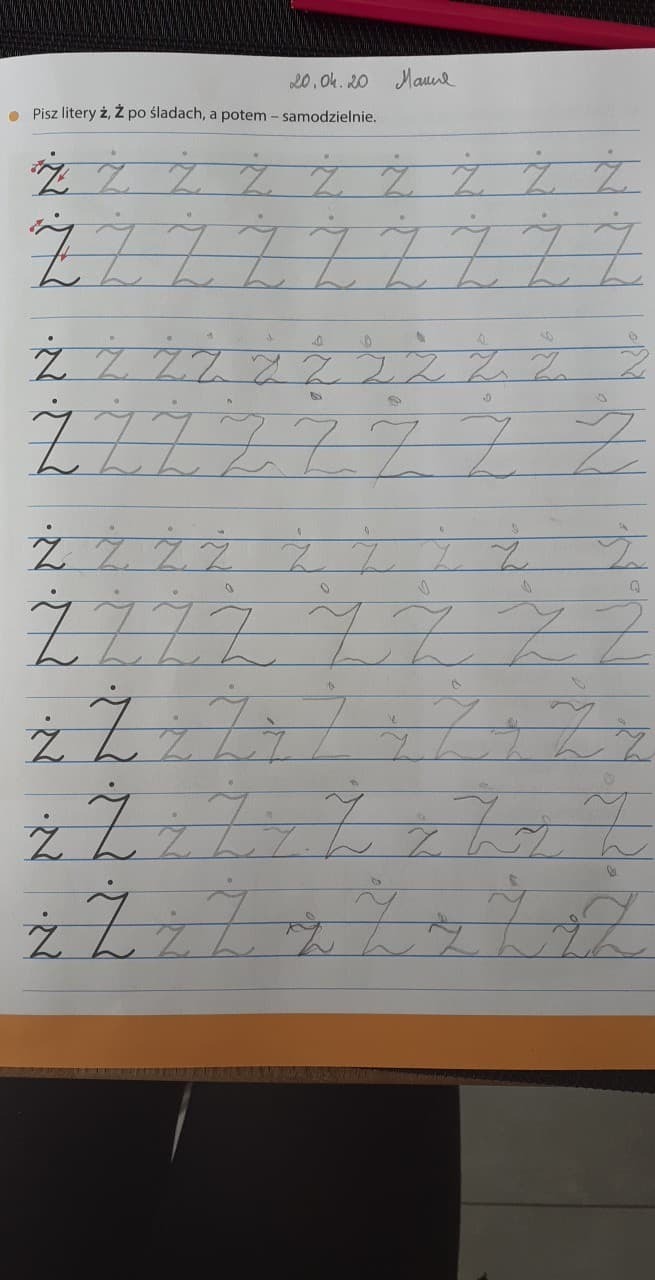 20.04.20
Pisz litery ż, Ż po śladach, a potem – samodzielnie.
ż ż ż ż ż ż ż ż ż
Ż Ż Ż Ż Ż Ż Ż Ż Ż
ż ż ż ż ż ż ż ż ż ż ż
Ż Ż Ż Ż Ż Ż Ż Ż
ż ż ż ż ż ż ż ż ż
Ż Ż Ż Ż Ż Ż Ż Ż
ż Ż ż Ż ż Ż ż Ż ż Ż ż
ż Ż ż Ż ż Ż ż Ż ż Ż
ż Ż ż Ż ż Ż ż Ż ż Ż